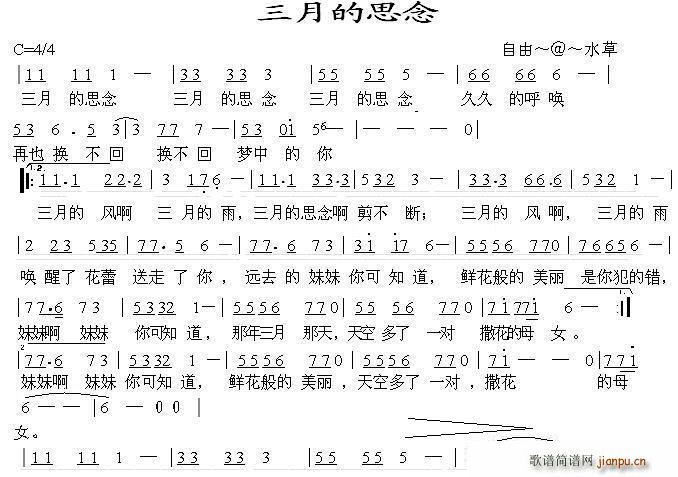 三月的思念
C=4/4 自由～@～水草
| 11 11 1 — | 33 33 3 — | 55 55 5 — | 66 66 6 — |
三月 的思念 三月 的思念 三月 的思念 久久 的呼唤
53 6. 53 3 | 3 77 7 — | 53 0i 56— | — — — 0 |
再也换 不回 换不回 梦中 的 你
1.2.
‖: 11.1 22.2 | 3 176 — | 11.1 33.3 | 532 1 — | 33.3 66.6 | 532 1 — |
三月的 风啊 三 月的 雨，三月的思念啊 剪不 断； 三月的 风 啊， 三月的 雨
| 2 23 535 | 77. 5 6 — | 77.6 73 | 3i i7 6 — | 5556 770 | 76656 — |
唤 醒了 花蕾 送走 了 你 ， 远去 的 妹妹 你可 知 道， 鲜花般的 美丽 是你犯的错，
1.
| 77.6 73 | 5332 1— | 5556 770 | 55 56 770 | 7i77i 6 — :|
妹妹啊 妹妹 你可知 道， 那年三月 那天，天空 多了 一对 撒花的母 女。
2
| 77.6 73 | 5332 1— | 5556 770 | 5556 770 | 7i — — 0 | 77i |
妹妹啊 妹妹 你可知 道， 鲜花般的 美丽 ，天空多了 一对 ，撒花 的母
6 — — | 6 — 0 0 |
女。
| 11 11 1 — | 33 33 3 — | 55 55 5 — | 66 66 6 — |
歌谱简谱网
jianpu.cn